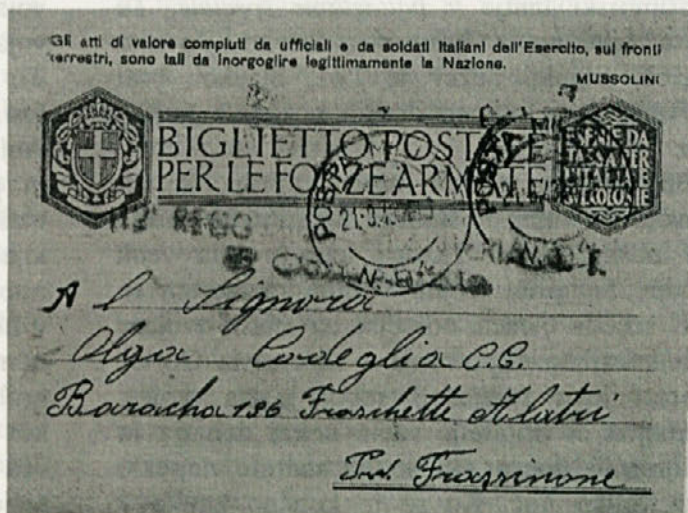 Gli atti di valore compiuti da ufficiali e da soldati italiani dell'Esercito, sui fronti
terrestri, sono tali da inorgoglire legittimamente la Nazione.
MUSSOLINI
BIGLIETTO POSTALE
PER LE FORZE ARMATE
ESENTE DA
TASSA PER
L'ITALIA E
COLONIE
POSTA
POSTA
21.3.
112° REGG
N.
A l Signora
Olga Codeglia C.C.
Baracha 136 Fraschette Alatri
Frassinone